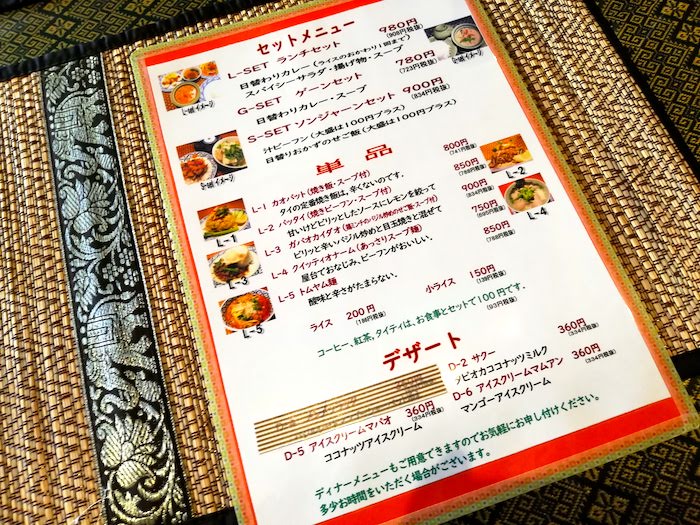 セットメニュー
L-SET ランチセット 980円
(908円税抜)
日替わりカレー(ライスのおかわり1回まで)
スパイシーサラダ・揚げ物・スープ
L-set イメージ
G-SET ゲーンセット 780円
(723円税抜)
日替わりカレー・スープ
G-set イメージ
S-SET ソンジャーンセット 900円
(834円税抜)
汁ビーフン(大盛は100円プラス)
日替りおかずのせご飯(大盛は100円プラス)
S-set イメージ
単品
L-1 カオパット(焼き飯・スープ付) 800円
(741円税抜)
タイの定番焼き飯は、辛くないのです。
L-2 パッタイ(焼きビーフン・スープ付) 850円
(788円税抜)
甘いけどピリッとしたソースにレモンを絞って
L-3 ガパオカイダオ(鶏ミンチのバジル炒めのせご飯・スープ付) 900円
(834円税抜)
ピリッと辛いバジル炒めと目玉焼きと混ぜて
L-4 クイッティオナーム(あっさりスープ麺) 750円
(695円税抜)
屋台でおなじみ、ビーフンがおいしい。
L-5 トムヤム麺 850円
(788円税抜)
酸味と辛さがたまらない。
L-1
L-3
L-5
L-2
L-4
ライス 200円
(186円税抜)
小ライス 150円
(139円税抜)
コーヒー、紅茶、タイティは、お食事とセットで100円です。
(93円税抜)
デザート
D-2 サクー 360円
(334円税抜)
タピオカココナッツミルク
D-5 アイスクリームマパオ 360円
(334円税抜)
ココナッツアイスクリーム
D-6 アイスクリームマムアン 360円
(334円税抜)
マンゴーアイスクリーム
ディナーメニューもご用意できますのでお気軽にお申し付けください。
多少お時間をいただく場合がございます。